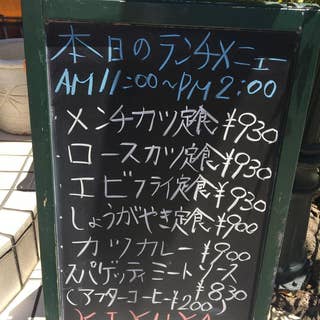 本日のランチメニュー
AM11:00~PM2:00
・メンチカツ定食 ¥930
・ロースカツ定食 ¥930
・エビフライ定食 ¥930
・しょうがやき定食 ¥900
・カツカレー ¥900
・スパゲッティミートソース ¥830
(アフターコーヒー¥200)